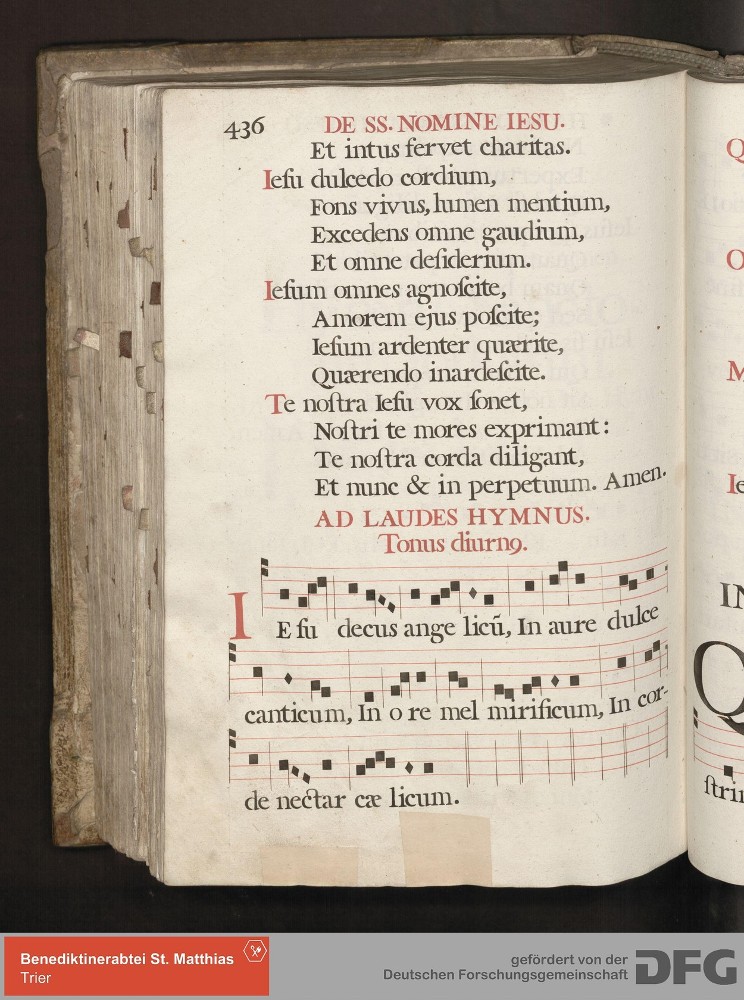 436 DE SS. NOMINE IESU.
Et intus fervet charitas.
Iesu dulcedo cordium,
Fons vivus, lumen mentium,
Excedens omne gaudium,
Et omne deſiderium.
Ieſum omnes agnoſcite,
Amorem ejus poſcite;
Ieſum ardenter quærite,
Quærendo inardeſcite.
Te noſtra Ieſu vox ſonet,
Noſtri te mores exprimant:
Te noſtra corda diligant,
Et nunc & in perpetuum. Amen.
AD LAUDES HYMNUS.
Tonus diurnꝯ.
IEſu decus ange licũ, In aure dulce
canticum, In o re mel mirificum, In cor-
de nectar cæ licum.
Q
O
M
Ie
IN
Q
ſtrin
Benediktinerabtei St. Matthias
Trier
gefördert von der
Deutschen Forschungsgemeinschaft
DFG